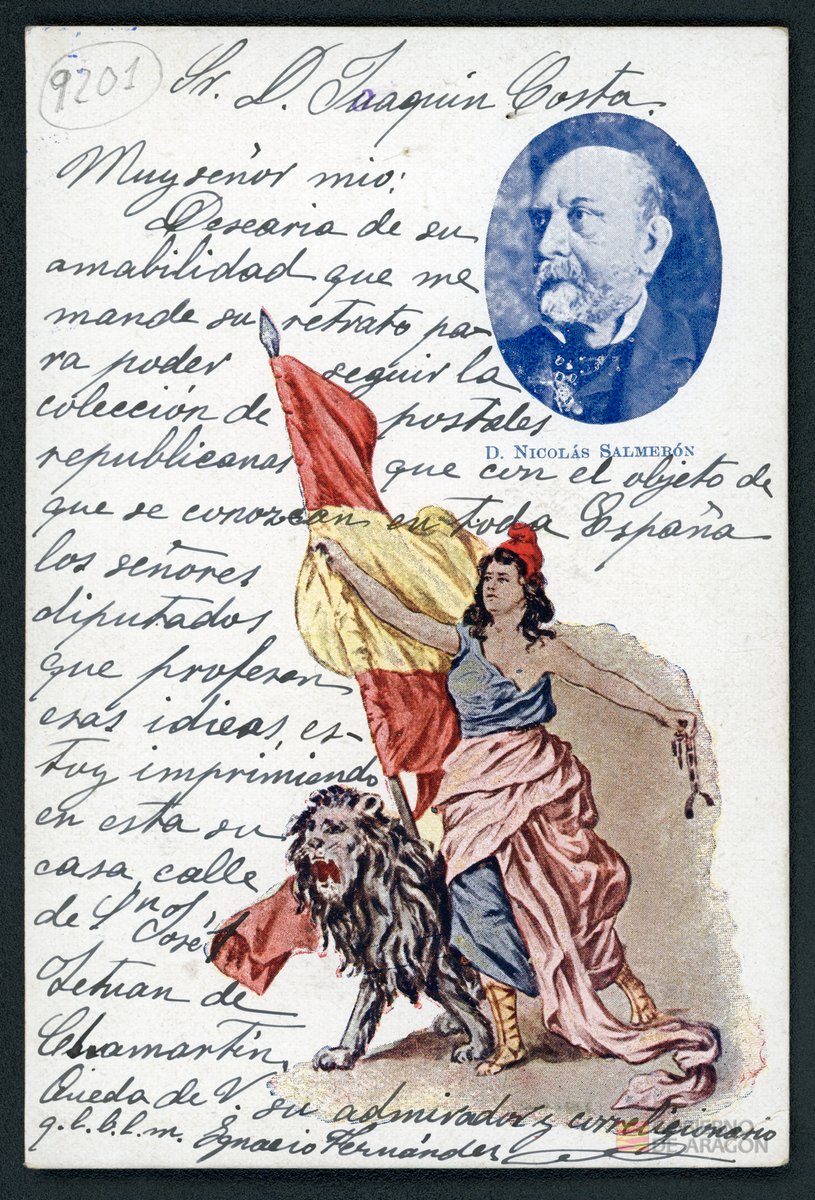 9201
Sr. D. Joaquin Costa.
Muy señor mio:
Desearia de su
amabilidad que me
mande su retrato pa-
ra poder seguir la
colección de postales
republicanas que con el objeto de
que se conozcan en toda España
los señores
diputados
que profesan
esas idieas, es-
toy imprimiendo
en esta su
casa calle
de
Tetuan de
Chamartín,
Queda de V. su admirador y correligionario
q. l. b. l. m. Ignacio Fernández
D. NICOLÁS SALMERÓN
GOBIERNO
DE ARAGON